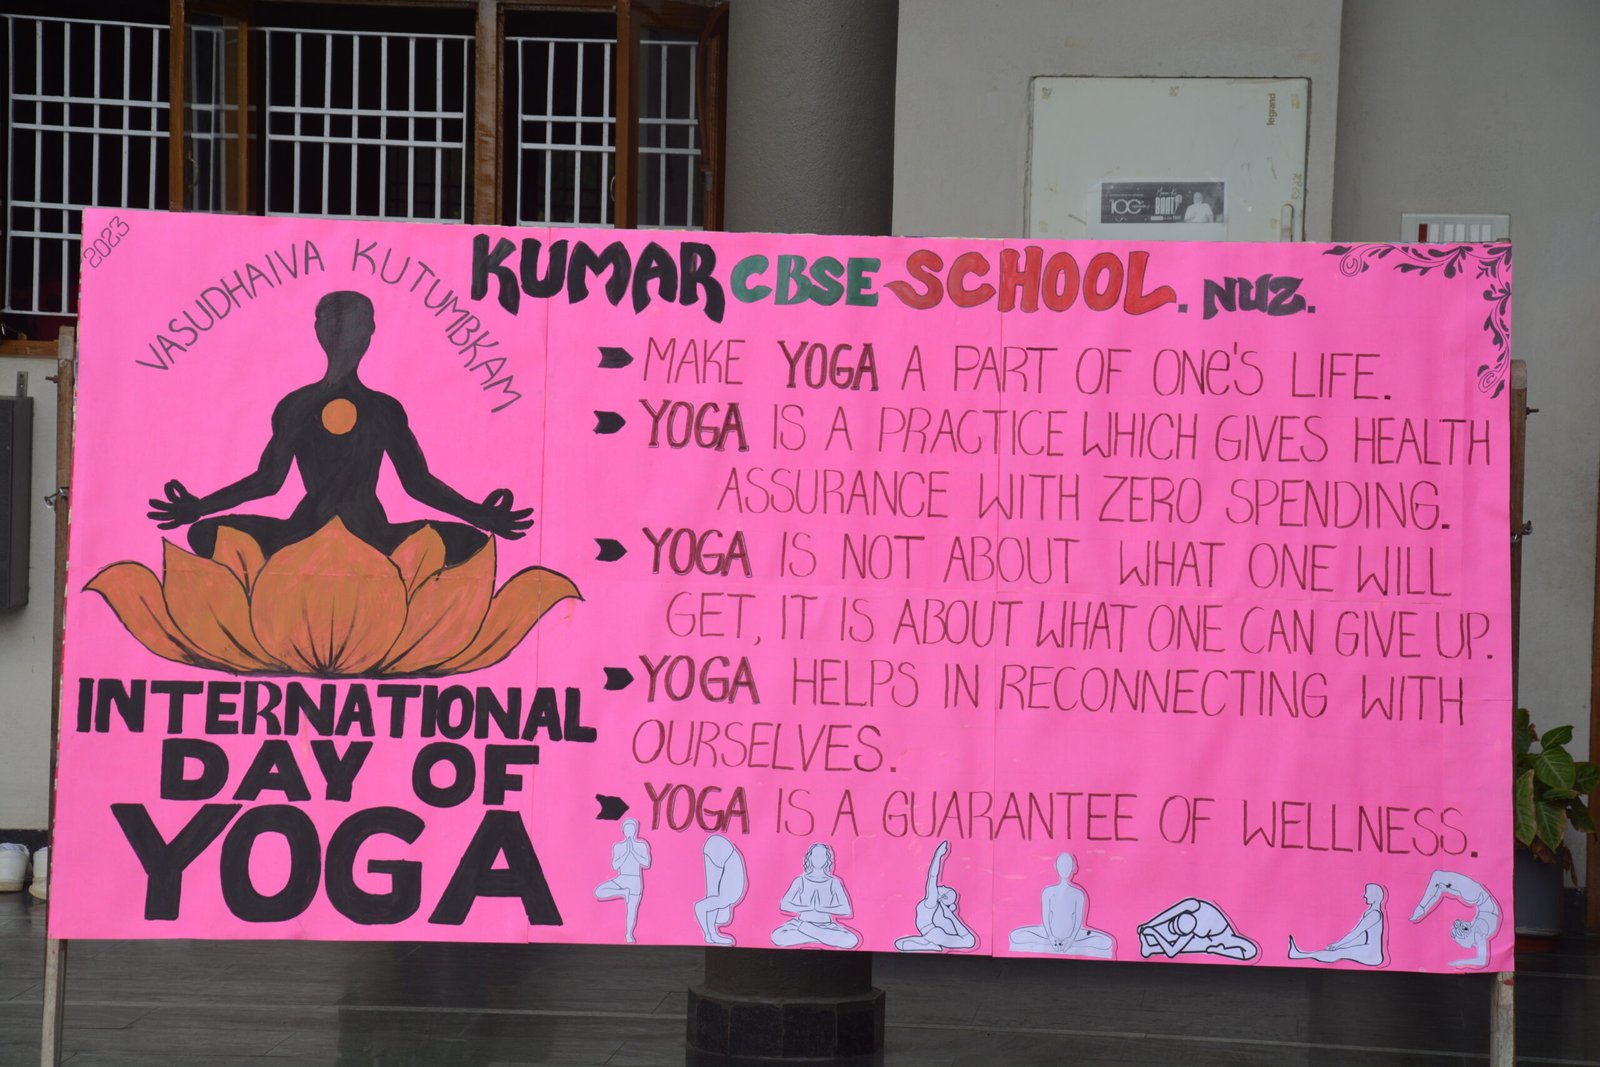 2023
VASUDHAIVA KUTUMBKAM
KUMAR CBSE SCHOOL. NUZ.
INTERNATIONAL
DAY OF
YOGA
MAKE YOGA A PART OF ONe'S LIFE.
YOGA IS A PRACTICE WHICH GIVES HEALTH
ASSURANCE WITH ZERO SPENDING.
YOGA IS NOT ABOUT WHAT ONE WILL
GET, IT IS ABOUT WHAT ONE CAN GIVE UP.
YOGA HELPS IN RECONNECTING WITH
OURSELVES.
YOGA IS A GUARANTEE OF WELLNESS.
legrand
100